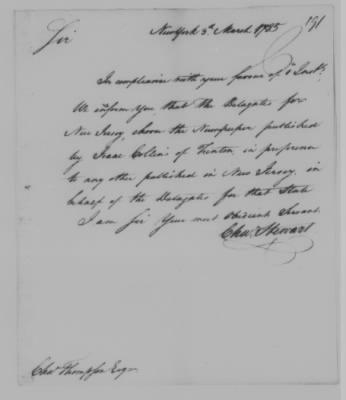 191
New York 3d March 1785
Sir
In compliance with your favour of 1 Inst.
We inform You, that the Delegates for
New Jersey, chosen the Newspaper published
by Isaac Collins of Trenton, in preference
to any other published in New Jersey, in
behalf of the Delegates for that State
I am Sir Your most Obedient Servant
Chas. Stewart
Chas Thompson Esqr